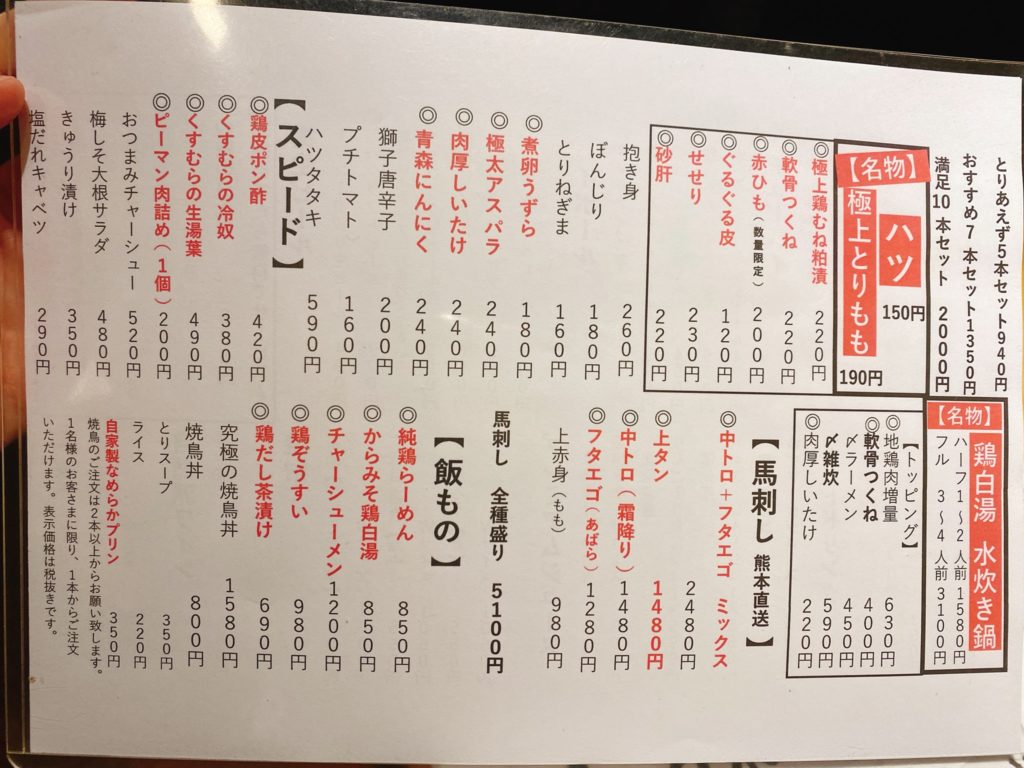 とりあえず5本セット940円
おすすめ7本セット1350円
満足10本セット 2000円
【名物】
ハツ
150円
極上とりもも
190円
◎極上鶏むね粕漬 220円
◎軟骨つくね 220円
◎赤ひも(数量限定) 200円
◎ぐるぐる皮 120円
◎せせり 230円
◎砂肝 220円
抱き身 260円
ぼんじり 180円
とりねぎま 160円
◎煮卵うずら 180円
◎極太アスパラ 240円
◎肉厚しいたけ 240円
◎青森にんにく 240円
獅子唐辛子 200円
プチトマト 160円
ハツタタキ 590円
【スピード】
◎鶏皮ポン酢 420円
◎くすむらの冷奴 380円
◎くすむらの生湯葉 490円
◎ピーマン肉詰め(1個) 200円
おつまみチャーシュー 520円
梅しそ大根サラダ 480円
きゅうり漬け 350円
塩だれキャベツ 290円
鶏白湯 水炊き鍋
【名物】
ハーフ1〜2人前 1580円
フル 3〜4人前 3100円
【トッピング】
◎地鶏肉増量 630円
◎軟骨つくね 400円
〆ラーメン 450円
〆雑炊 590円
◎肉厚しいたけ 220円
【馬刺し 熊本直送】
◎中トロ+フタエゴ ミックス
2480円
◎上タン 1480円
◎中トロ(霜降り) 1480円
◎フタエゴ(あばら) 1280円
上赤身(もも) 980円
馬刺し 全種盛り 5100円
【飯もの】
◎純鶏らーめん 850円
◎からみそ鶏白湯 850円
◎チャーシューメン 1200円
◎鶏ぞうすい 980円
◎鶏だし茶漬け 690円
究極の焼鳥丼 1580円
焼鳥丼 800円
とりスープ 350円
ライス 220円
自家製なめらかプリン 350円
焼鳥のご注文は2本以上からお願い致します。
1名様のお客さまに限り、1本からご注文
いただけます。表示価格は税抜きです。